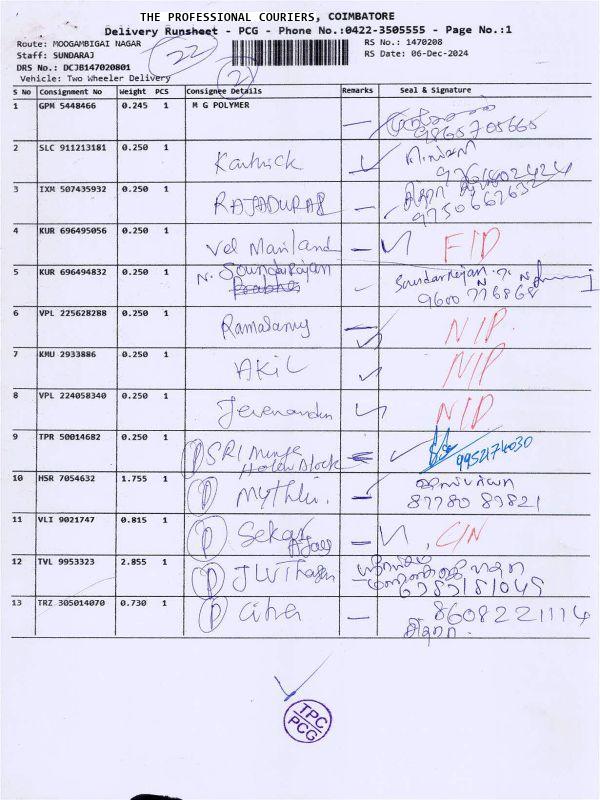 THE PROFESSIONAL COURIERS, COIMBATORE
Delivery Runsheet - PCG - Phone No.:0422-3505555 - Page No.:1
Route: MOOGAMBIGAI NAGAR
RS No.: 1470208
Staff: SUNDARAJ
RS Date: 06-Dec-2024
DRS No.: DCJB147020801
Vehicle: Two Wheeler Delivery
22
2
S No Consignment No Weight PCS Consignee Details Remarks Seal & Signature
1 GPM 5448466 0.245 1 M G POLYMER
9865705665
2 SLC 911213181 0.250 1 Karthick
3 IXM 507435932 0.250 1 RAJADURAI
9750662632
4 KUR 696495056 0.250 1 F/D
5 KUR 696494832 0.250 1 N. Soundarajan Soundarrajan
9600 776868
6 VPL 225628288 0.250 1 Ramasamy N/P
7 KMU 2933886 0.250 1 AKIL N/P
8 VPL 224058340 0.250 1 N/D
9 TPR 50014682 0.250 1 P SRI 9952174030
10 HSR 7054632 1.755 1 P Mythli. 87780 83821
11 VLI 9021747 0.815 1 P Sekar C/N
12 TVL 9953323 2.855 1 P
13 TRZ 305014070 0.730 1 P 8608221114
TPC
PCG